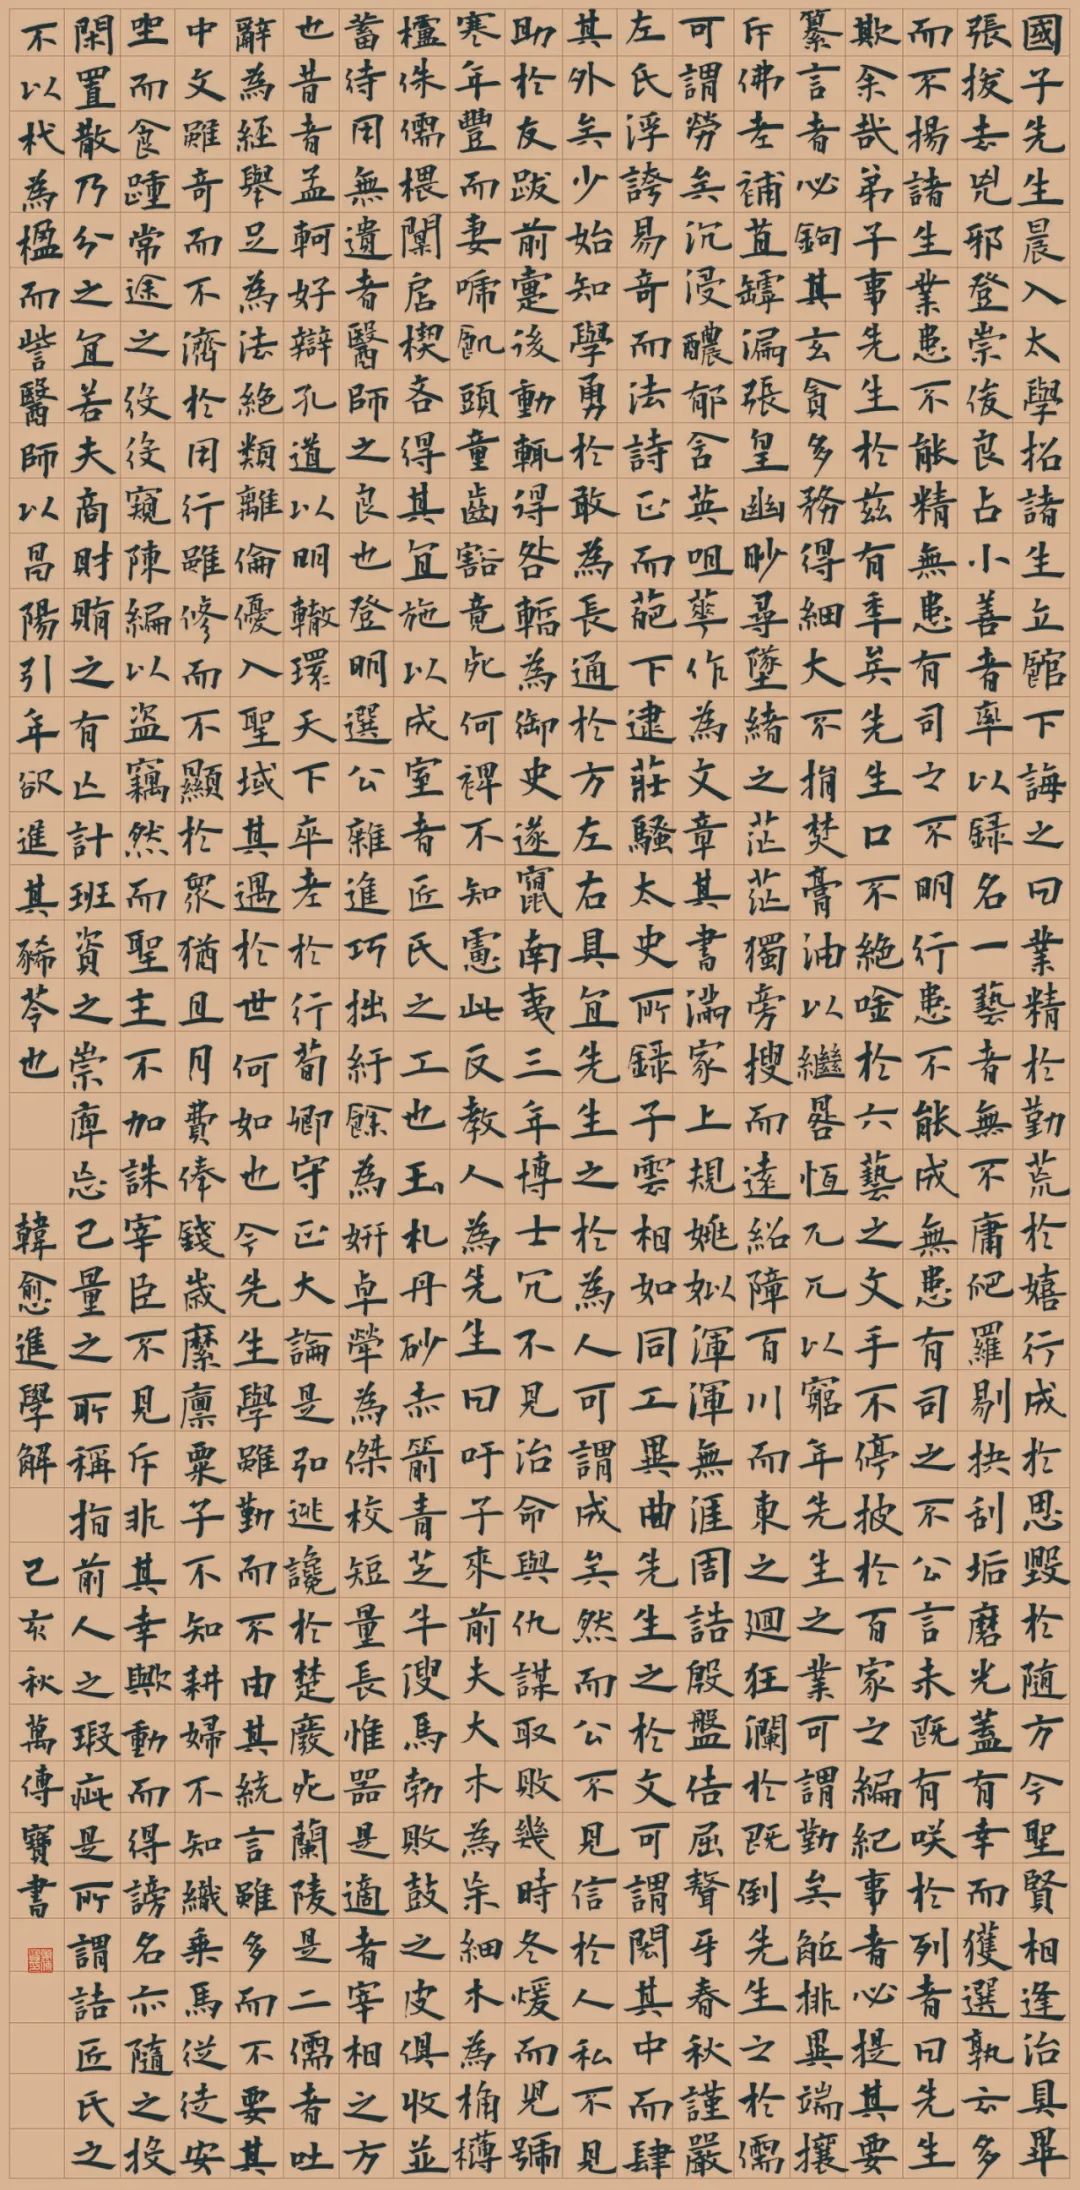 國子先生晨入太學招諸生立館下誨之曰業精於勤荒於嬉行成於思毀於隨方今聖賢相逢治具畢
張拔去兇邪登崇俊良占小善者率以錄名一藝者無不庸爬羅剔抉刮垢磨光蓋有幸而獲選孰云多
而不揚諸生業患不能精無患有司之不明行患不能成無患有司之不公言未既有咲於列者曰先生
欺余哉弟子事先生於茲有季矣先生口不絕唫於六藝之文手不停披於百家之編紀事者必提其要
纂言者必鉤其玄貪多務得細大不捐焚膏油以繼晷恒兀兀以窮年先生之業可謂勤矣觝排異端攘
斥佛老補苴罅漏張皇幽眇尋墜緒之茫茫獨旁搜而遠紹障百川而東之迴狂瀾於既倒先生之於儒
可謂勞矣沉浸醲郁含英咀華作為文章其書滿家上規姚姒渾渾無涯周誥殷盤佶屈聱牙春秋謹嚴
左氏浮誇易奇而法詩正而葩下逮莊騷太史所錄子雲相如同工異曲先生之於文可謂閎其中而肆
其外矣少始知學勇於敢為長通於方左右具宜先生之於為人可謂成矣然而公不見信於人私不見
助於友跋前疐後動輒得咎暫為御史遂竄南夷三年博士冗不見治命與仇謀取敗幾時冬煖而兒號
寒年豐而妻啼飢頭童齒豁竟死何裨不知慮此反教人為先生曰吁子來前夫大木為杗細木為桷欂
櫨侏儒椳闑扂楔各得其宜施以成室者匠氏之工也玉札丹砂赤箭青芝牛溲馬勃敗鼓之皮俱收並
蓄待用無遺者醫師之良也登明選公雜進巧拙紆餘為妍卓犖為傑校短量長惟器是適者宰相之方
也昔者孟軻好辯孔道以明轍環天下卒老於行荀卿守正大論是弘逃讒於楚廢死蘭陵是二儒者吐
辭為經舉足為法絕類離倫優入聖域其遇於世何如也今先生學雖勤而不由其統言雖多而不要其
中文雖奇而不濟於用行雖修而不顯於眾猶且月費俸錢歲糜廩粟子不知耕婦不知織乘馬從徒安
坐而食踵常途之役役窺陳編以盜竊然而聖主不加誅宰臣不見斥非其幸歟動而得謗名亦隨之投
閑置散乃分之宜若夫商財賄之有亡計班資之崇庳忘己量之所稱指前人之瑕疵是所謂詰匠氏之
不以杙為楹而訾醫師以昌陽引年欲進其豨苓也 韓愈進學解 己亥秋萬傅寶書